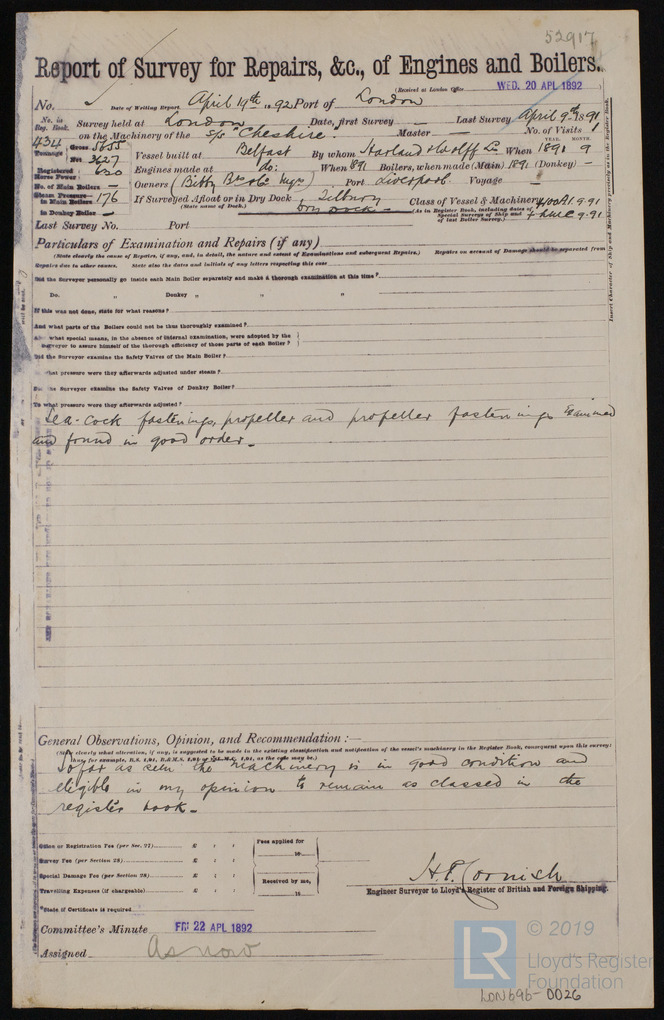 52917
Report of Survey for Repairs, &c., of Engines and Boilers.
(Received at London Office WED. 20 APL 1892
No. Date of Writing Report April 19th 1892 Port of London
No. in Reg. Book. Survey held at London Date, first Survey — Last Survey April 9th 1891
434 on the Machinery of the s/s "Cheshire" Master — No. of Visits 1
Tonnage Gross 5655 Vessel built at Belfast By whom Harland & Wolff Ld When 1891 9
YEAR. MONTH.
Net 3627
Registered Horse Power 630 Engines made at do: When 891 Boilers, when made (Main) 1891 (Donkey) —
No. of Main Boilers — Owners (Bibby Bros & Co Mgrs) Port Liverpool Voyage —
Steam Pressure in Main Boilers 176 If Surveyed Afloat or in Dry Dock Tilbury Dry Dock Class of Vessel & Machinery 100A1. 9.91
(State name of Dock.) (As in Register Book, including dates of Special Surveys of Ship and of last Boiler Survey.) LMC 9.91
in Donkey Boiler —
Last Survey No. Port
Particulars of Examination and Repairs (if any)
(State clearly the cause of Repairs, if any, and, in detail, the nature and extent of Examinations and subsequent Repairs.) Repairs on account of Damage should be separated from
Repairs due to other causes. State also the dates and initials of any letters respecting this case
Did the Surveyor personally go inside each Main Boiler separately and make a thorough examination at this time?
Do. „ Donkey „ „ „
If this was not done, state for what reasons?
And what parts of the Boilers could not be thus thoroughly examined?
what special means, in the absence of internal examination, were adopted by the
Surveyor to assure himself of the thorough efficiency of those parts of each Boiler?
Did the Surveyor examine the Safety Valves of the Main Boiler?
what pressure were they afterwards adjusted under steam?
the Surveyor examine the Safety Valves of Donkey Boiler?
To what pressure were they afterwards adjusted?
Sea-cock fastenings, propeller and propeller fastenings Examined
and found in good order.
General Observations, Opinion, and Recommendation :—
(State clearly what alteration, if any, is suggested to be made in the existing classification and notification of the vessel's machinery in the Register Book, consequent upon this survey:
thus for example, B.S. 1.91, B.&M.S. 1.91 or L.M.C. 1.91, as the case may be.)
So far as seen the machinery is in good condition and
eligible in my opinion to remain as classed in the
register book.
Office or Registration Fee (per Sec. 27) £ : : Fees applied for
Survey Fee (per Section 28) £ : : 18
Special Damage Fee (per Section 28) £ : : Received by me,
Travelling Expenses (if chargeable) £ : : 18
H.P. Cornish
Engineer Surveyor to Lloyd's Register of British and Foreign Shipping.
*State of Certificate is required
Committee's Minute FRI 22 APL 1892
Assigned As now
Insert Character of Ship and Machinery precisely as in the Register Book.
LR © 2019
Lloyd's Register
Foundation
LON696-0026